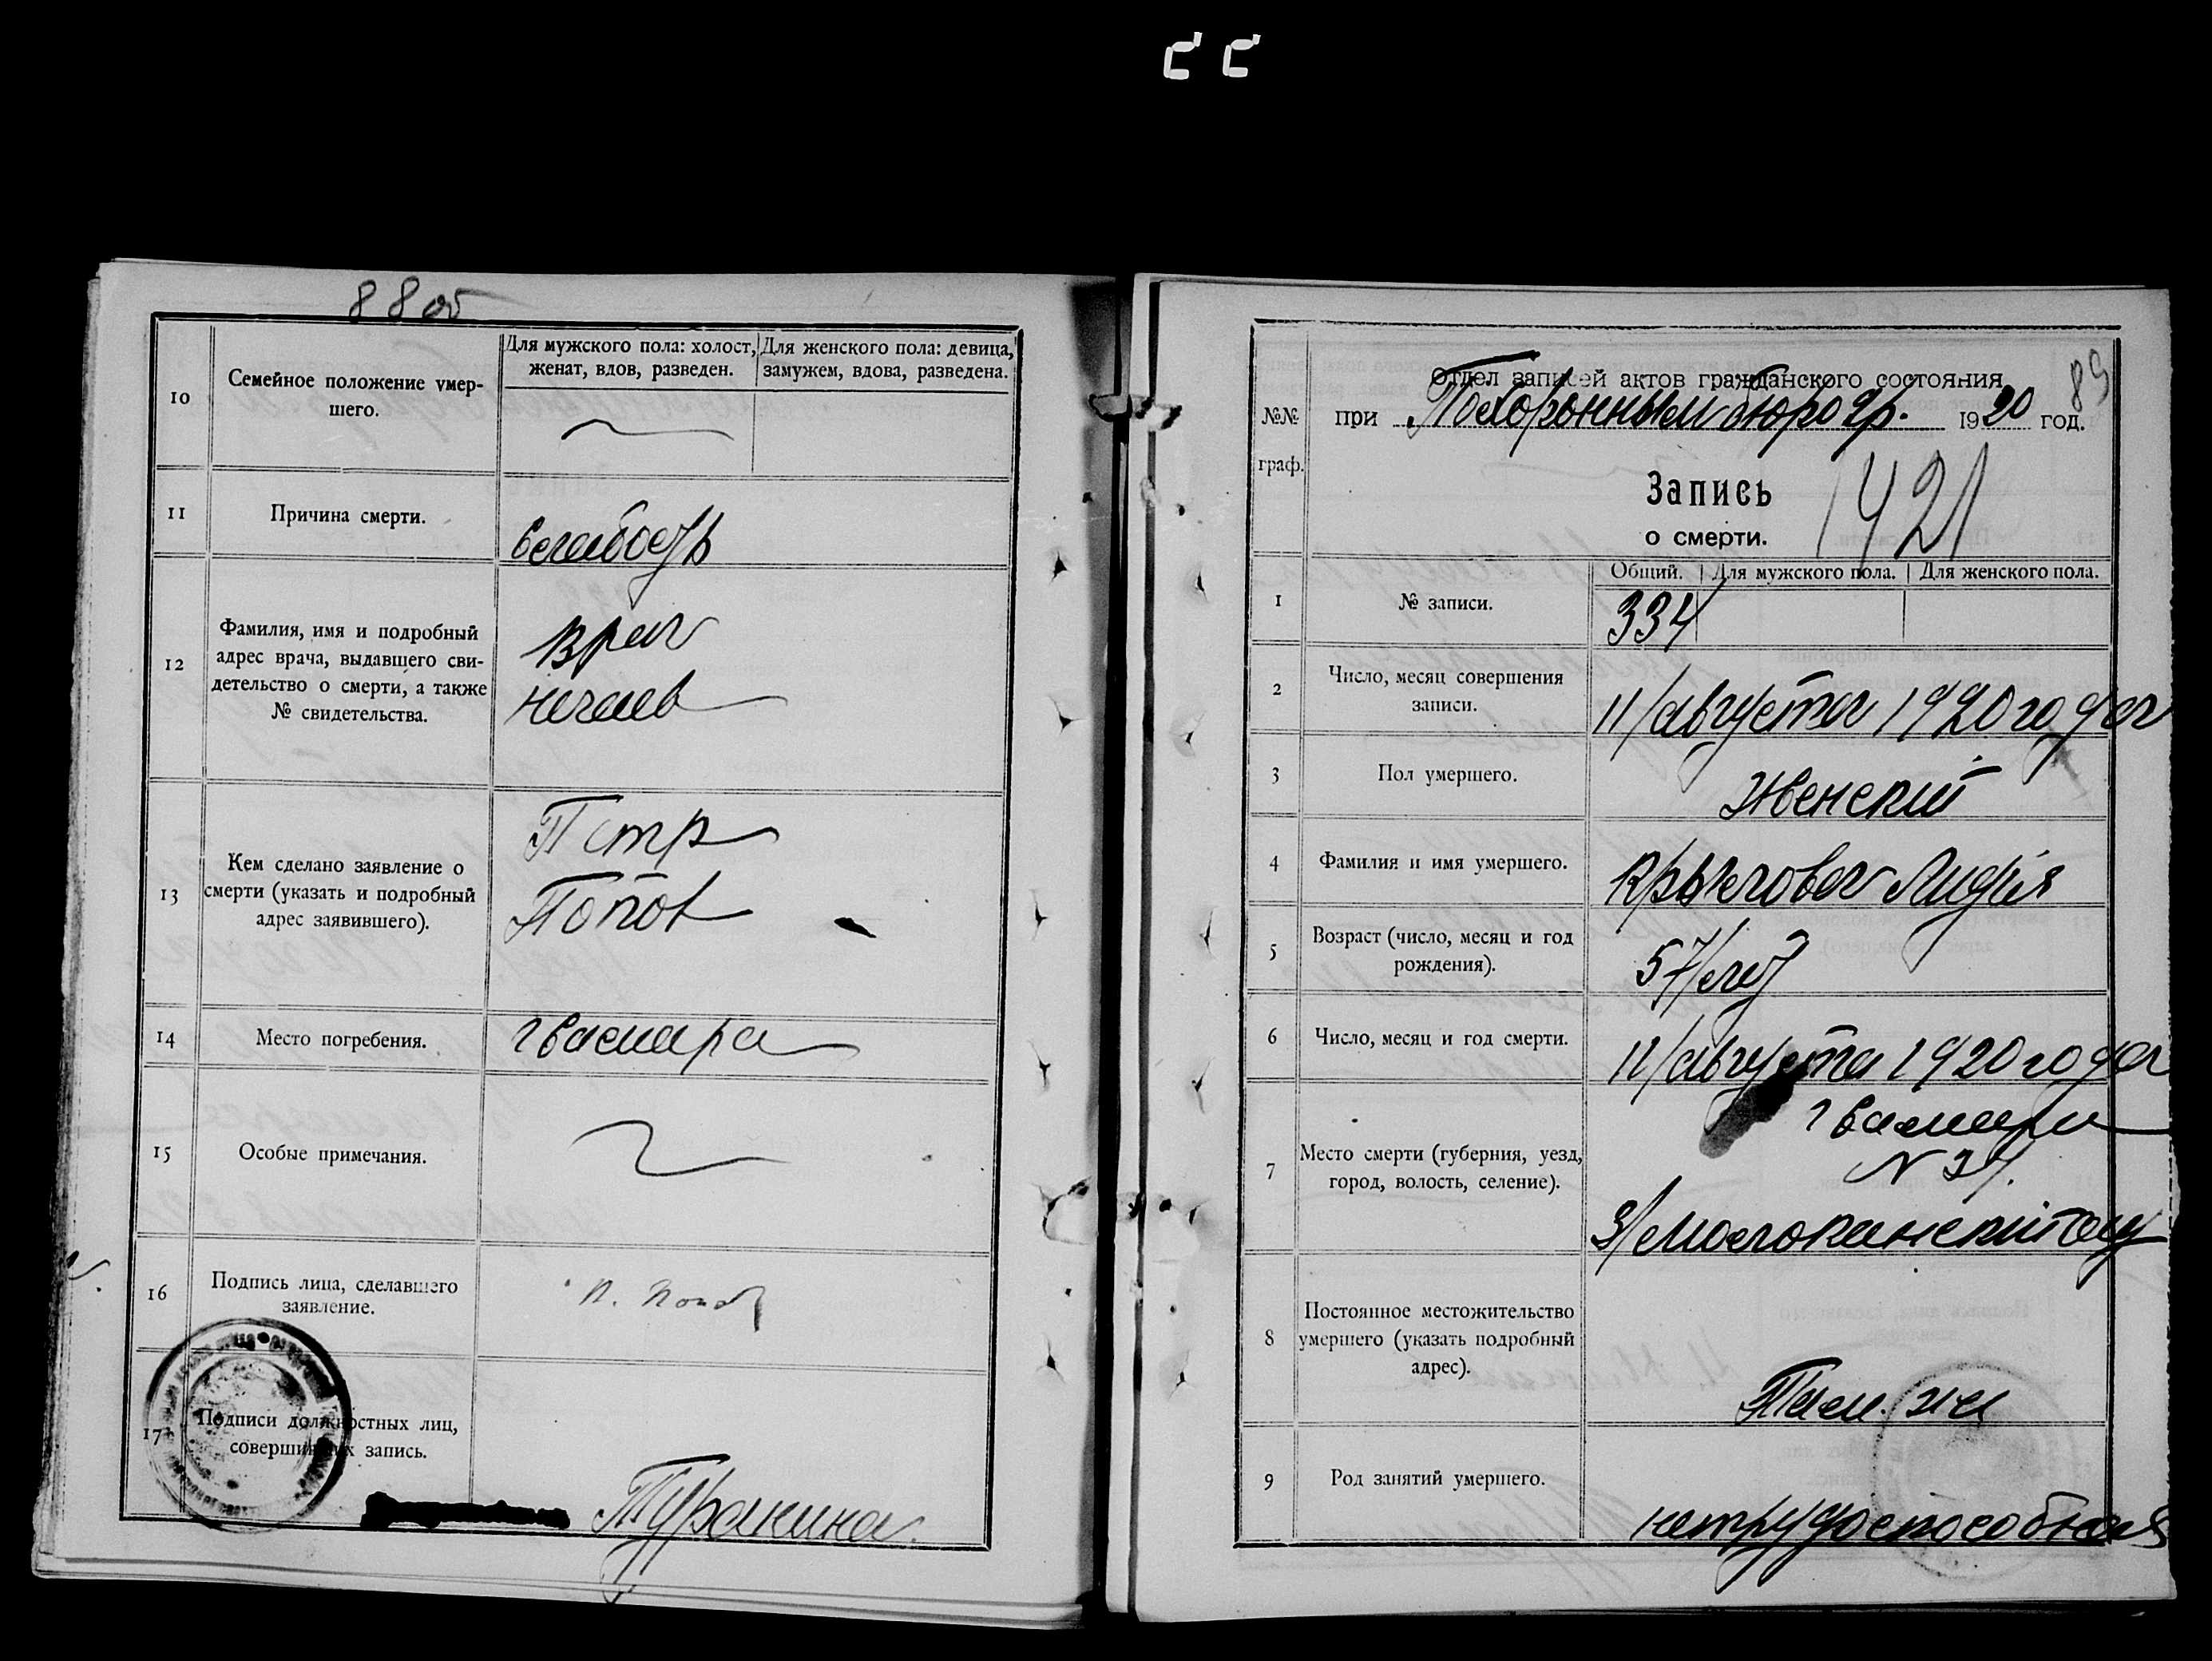 88 об
10
Семейное положение умер-
шего.
Для мужского пола: холост,
женат, вдов, разведен.
Для женского пола: девица,
замужем, вдова, разведена.
11
Причина смерти.
слабость
12
Фамилия, имя и подробный
адрес врача, выдавшего сви-
детельство о смерти, а также
№ свидетельства.
Врач
Нечаев
13
Кем сделано заявление о
смерти (указать и подробный
адрес заявившего).
Петр
Попов
14
Место погребения.
г Самара
15
Особые примечания.
16
Подпись лица, сделавшего
заявление.
П. Попов
17
Подписи должностных лиц,
совершивших запись.
Туранина
89
№№
граф.
Отдел записей актов гражданского состояния
при Похоронным бюро гр. 1920 год.
Запись
о смерти.
1421
Общий.
Для мужского пола.
Для женского пола.
1
№ записи.
334
2
Число, месяц совершения
записи.
11/августа 1920 года
3
Пол умершего.
Женский
4
Фамилия и имя умершего.
Крылова Лидия
5
Возраст (число, месяц и год
рождения).
57/лет
6
Число, месяц и год смерти.
11/августа 1920 года
7
Место смерти (губерния, уезд,
город, волость, селение).
г Самара
N 34.
3/Молоканский сад
8
Постоянное местожительство
умершего (указать подробный
адрес).
Там же
9
Род занятий умершего.
нетрудоспособная